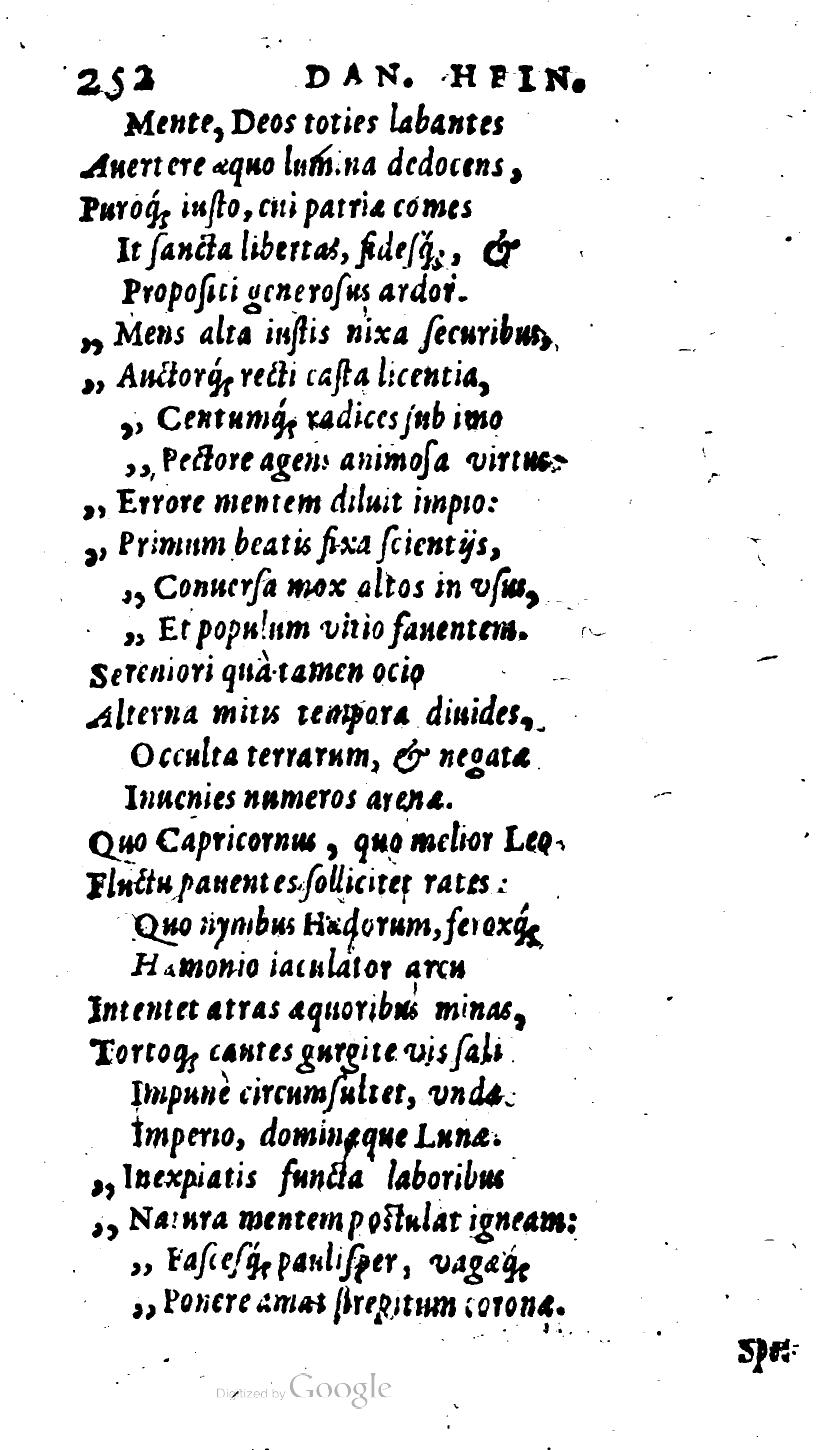 252 DAN. HEIN.
Mente, Deos toties labantes
Auertere æquo lumina dedocens,
Puroq́; iuſto, cui patriæ comes
It ſancta libertas, fideſq́;, &
Propoſiti generoſus ardor.
„ Mens alta iuſtis nixa ſecuribus,
„ Auctorq́; recti caſta licentia,
„ Centumq́; radices ſub imo
„ Pectore agens animoſa virtus
„ Errore mentem diluit impio:
„ Primum beatis fixa ſcientijs,
„ Conuerſa mox altos in vſus,
„ Et populum vitio fauentem.
Sereniori quà tamen ocio
Alterna mitis tempora diuides,
Occulta terrarum, & negatæ
Inuenies numeros arenæ.
Quo Capricornus, quo melior Leo
Fluctu pauentes ſollicitet rates:
Quo nymbus Hædorum, feroxq́;
Hæmonio iaculator arcu
Intentet atras æquoribus minas,
Tortoq; cautes gurgite vis ſali
Impunè circumſultet, vndæ
Imperio, dominæque Lunæ.
„ Inexpiatis functa laboribus
„ Natura mentem poſtulat igneam:
„ Faſceſq́; pauliſper, vagæq́;
„ Ponere amat ſtrepitum coronæ.
Digitized by Google